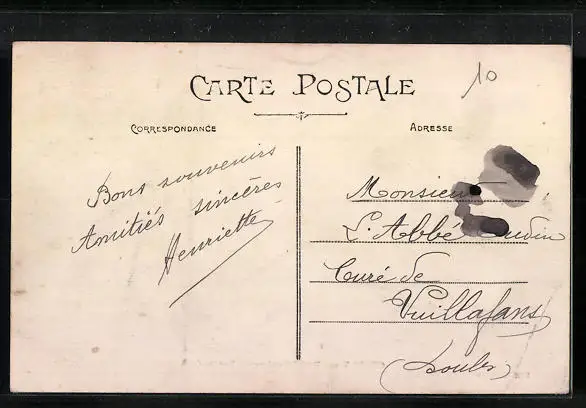 10
CARTE POSTALE
CORRESPONDANCE
ADRESSE
Bons souvenirs
Amitiés sincères
Henriette
Monsieur
L'Abbé
Curé de
Vuillafans
(Doubs)